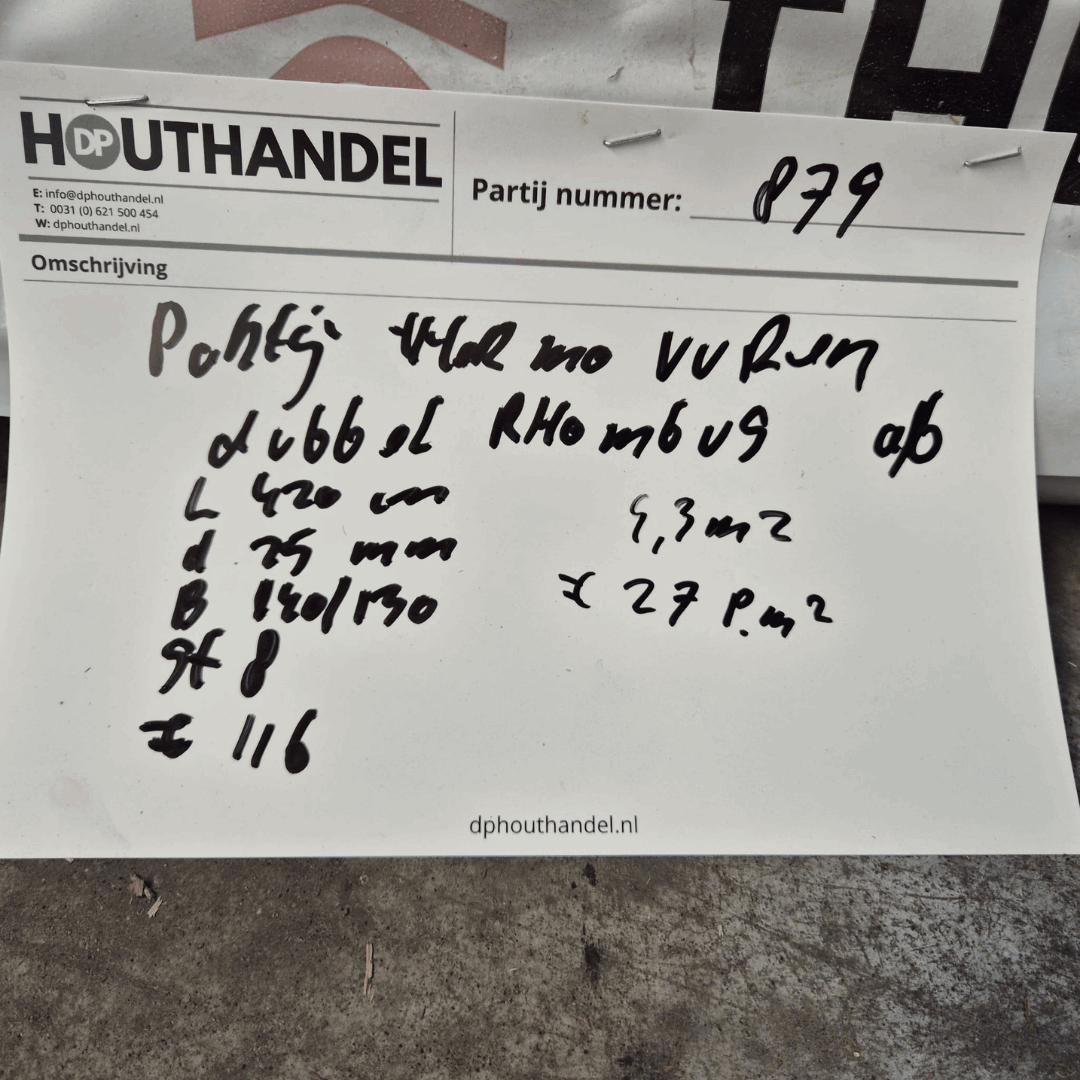 HOUTHANDEL
DP
E: info@dphouthandel.nl
T: 0031 (0) 621 500 454
W: dphouthandel.nl
Partij nummer: 879
Omschrijving
Partij tHeRmo VuRen
dubbel RHombus a/b
L 420 cm 4,3 m2
d 25 mm
B 140/130 € 27 P.m2
st 8
€ 116
dphouthandel.nl